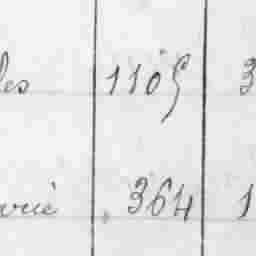 les 1105 3
vrié 364 1